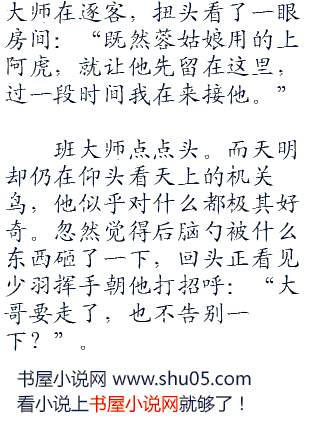 大师在逐客，扭头看了一眼
房间：“既然蓉姑娘用的上
阿虎，就让他先留在这里，
过一段时间我在来接他。”
班大师点点头。而天明
却仍在仰头看天上的机关
鸟，他似乎对什么都极其好
奇。忽然觉得后脑勺被什么
东西砸了一下，回头正看见
少羽挥手朝他打招呼：“大
哥要走了，也不告别一
下？”。
书屋小说网 www.shu05.com
看小说上书屋小说网就够了！